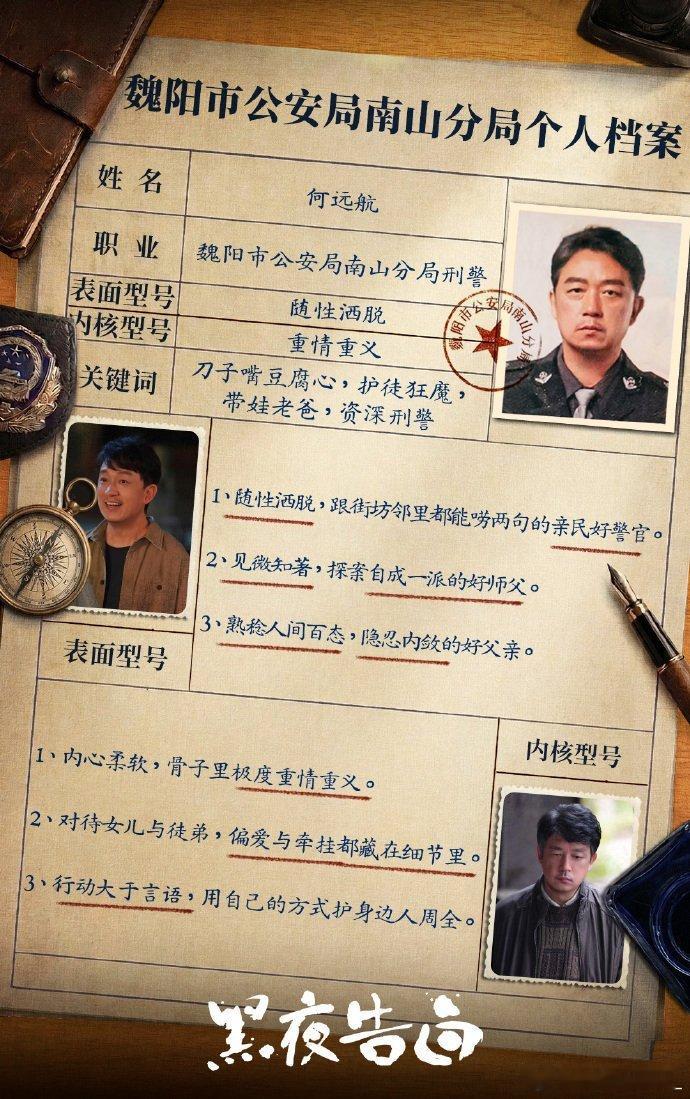 魏阳市公安局南山分局个人档案
姓名
何远航
职业
魏阳市公安局南山分局刑警
表面型号
随性洒脱
内核型号
重情重义
关键词
刀子嘴豆腐心，护徒狂魔，
带娃老爸，资深刑警
魏阳市公安局南山分局
1、随性洒脱，跟街坊邻里都能唠两句的亲民好警官。
2、见微知著，探案自成一派的好师父。
3、熟稔人间百态，隐忍内敛的好父亲。
表面型号
内核型号
1、内心柔软，骨子里极度重情重义。
2、对待女儿与徒弟，偏爱与牵挂都藏在细节里。
3、行动大于言语，用自己的方式护身边人周全。
黑夜告白